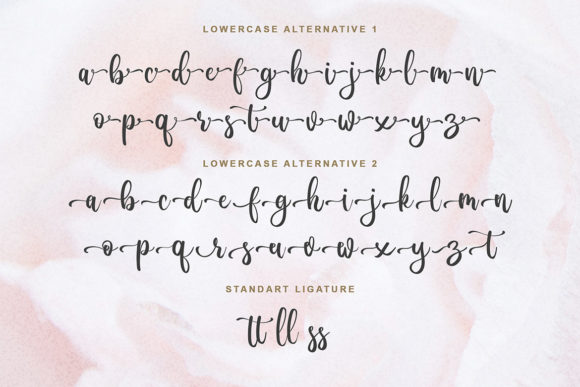 LOWERCASE ALTERNATIVE 1
a b c d e f g h i j k l m n
o p q r s t u v w x y z
LOWERCASE ALTERNATIVE 2
a b c d e f g h i j k l m n
o p q r s u v w x y z t
STANDART LIGATURE
tt ll ss